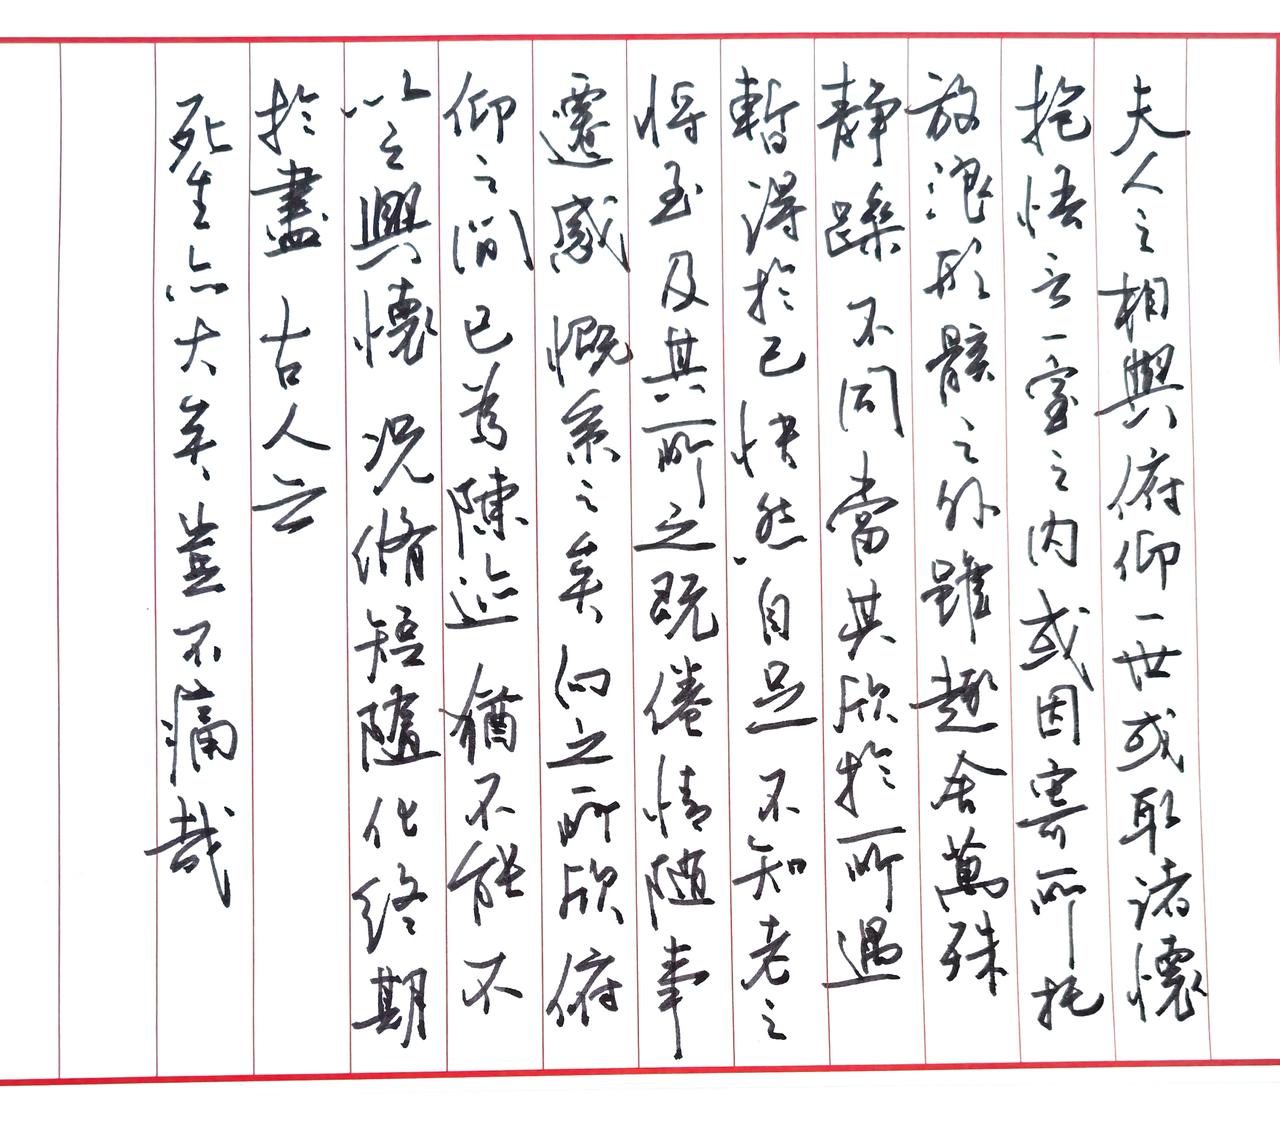 夫人之相與俯仰一世或取諸懷
抱悟言一室之内或因寄所托
放浪形骸之外雖趣舍萬殊
靜躁不同當其欣於所遇
暫得於己快然自足不知老之
將至及其所之既倦情隨事
遷感慨系之矣向之所欣俯
仰之間已為陳迹猶不能不
以之興懷況脩短隨化終期
於盡古人云
死生亦大矣豈不痛哉